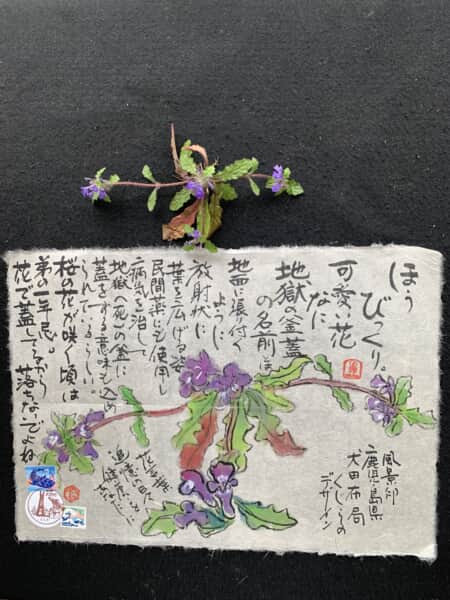 ほう
びっくり。
可愛い花
なに
地獄の釜蓋
の名前
地面に張り付く
ように
放射状に
葉を広げる姿
民間薬にも使用し
病気を治して
地獄(死)の釜に
蓋をする意味も込め
られているらしい。
桜の花が咲く頃は
弟の一年忌。
花で蓋してるから
落ちないでよね
風景印
鹿児島県
犬田布局
くじらの
デザイン